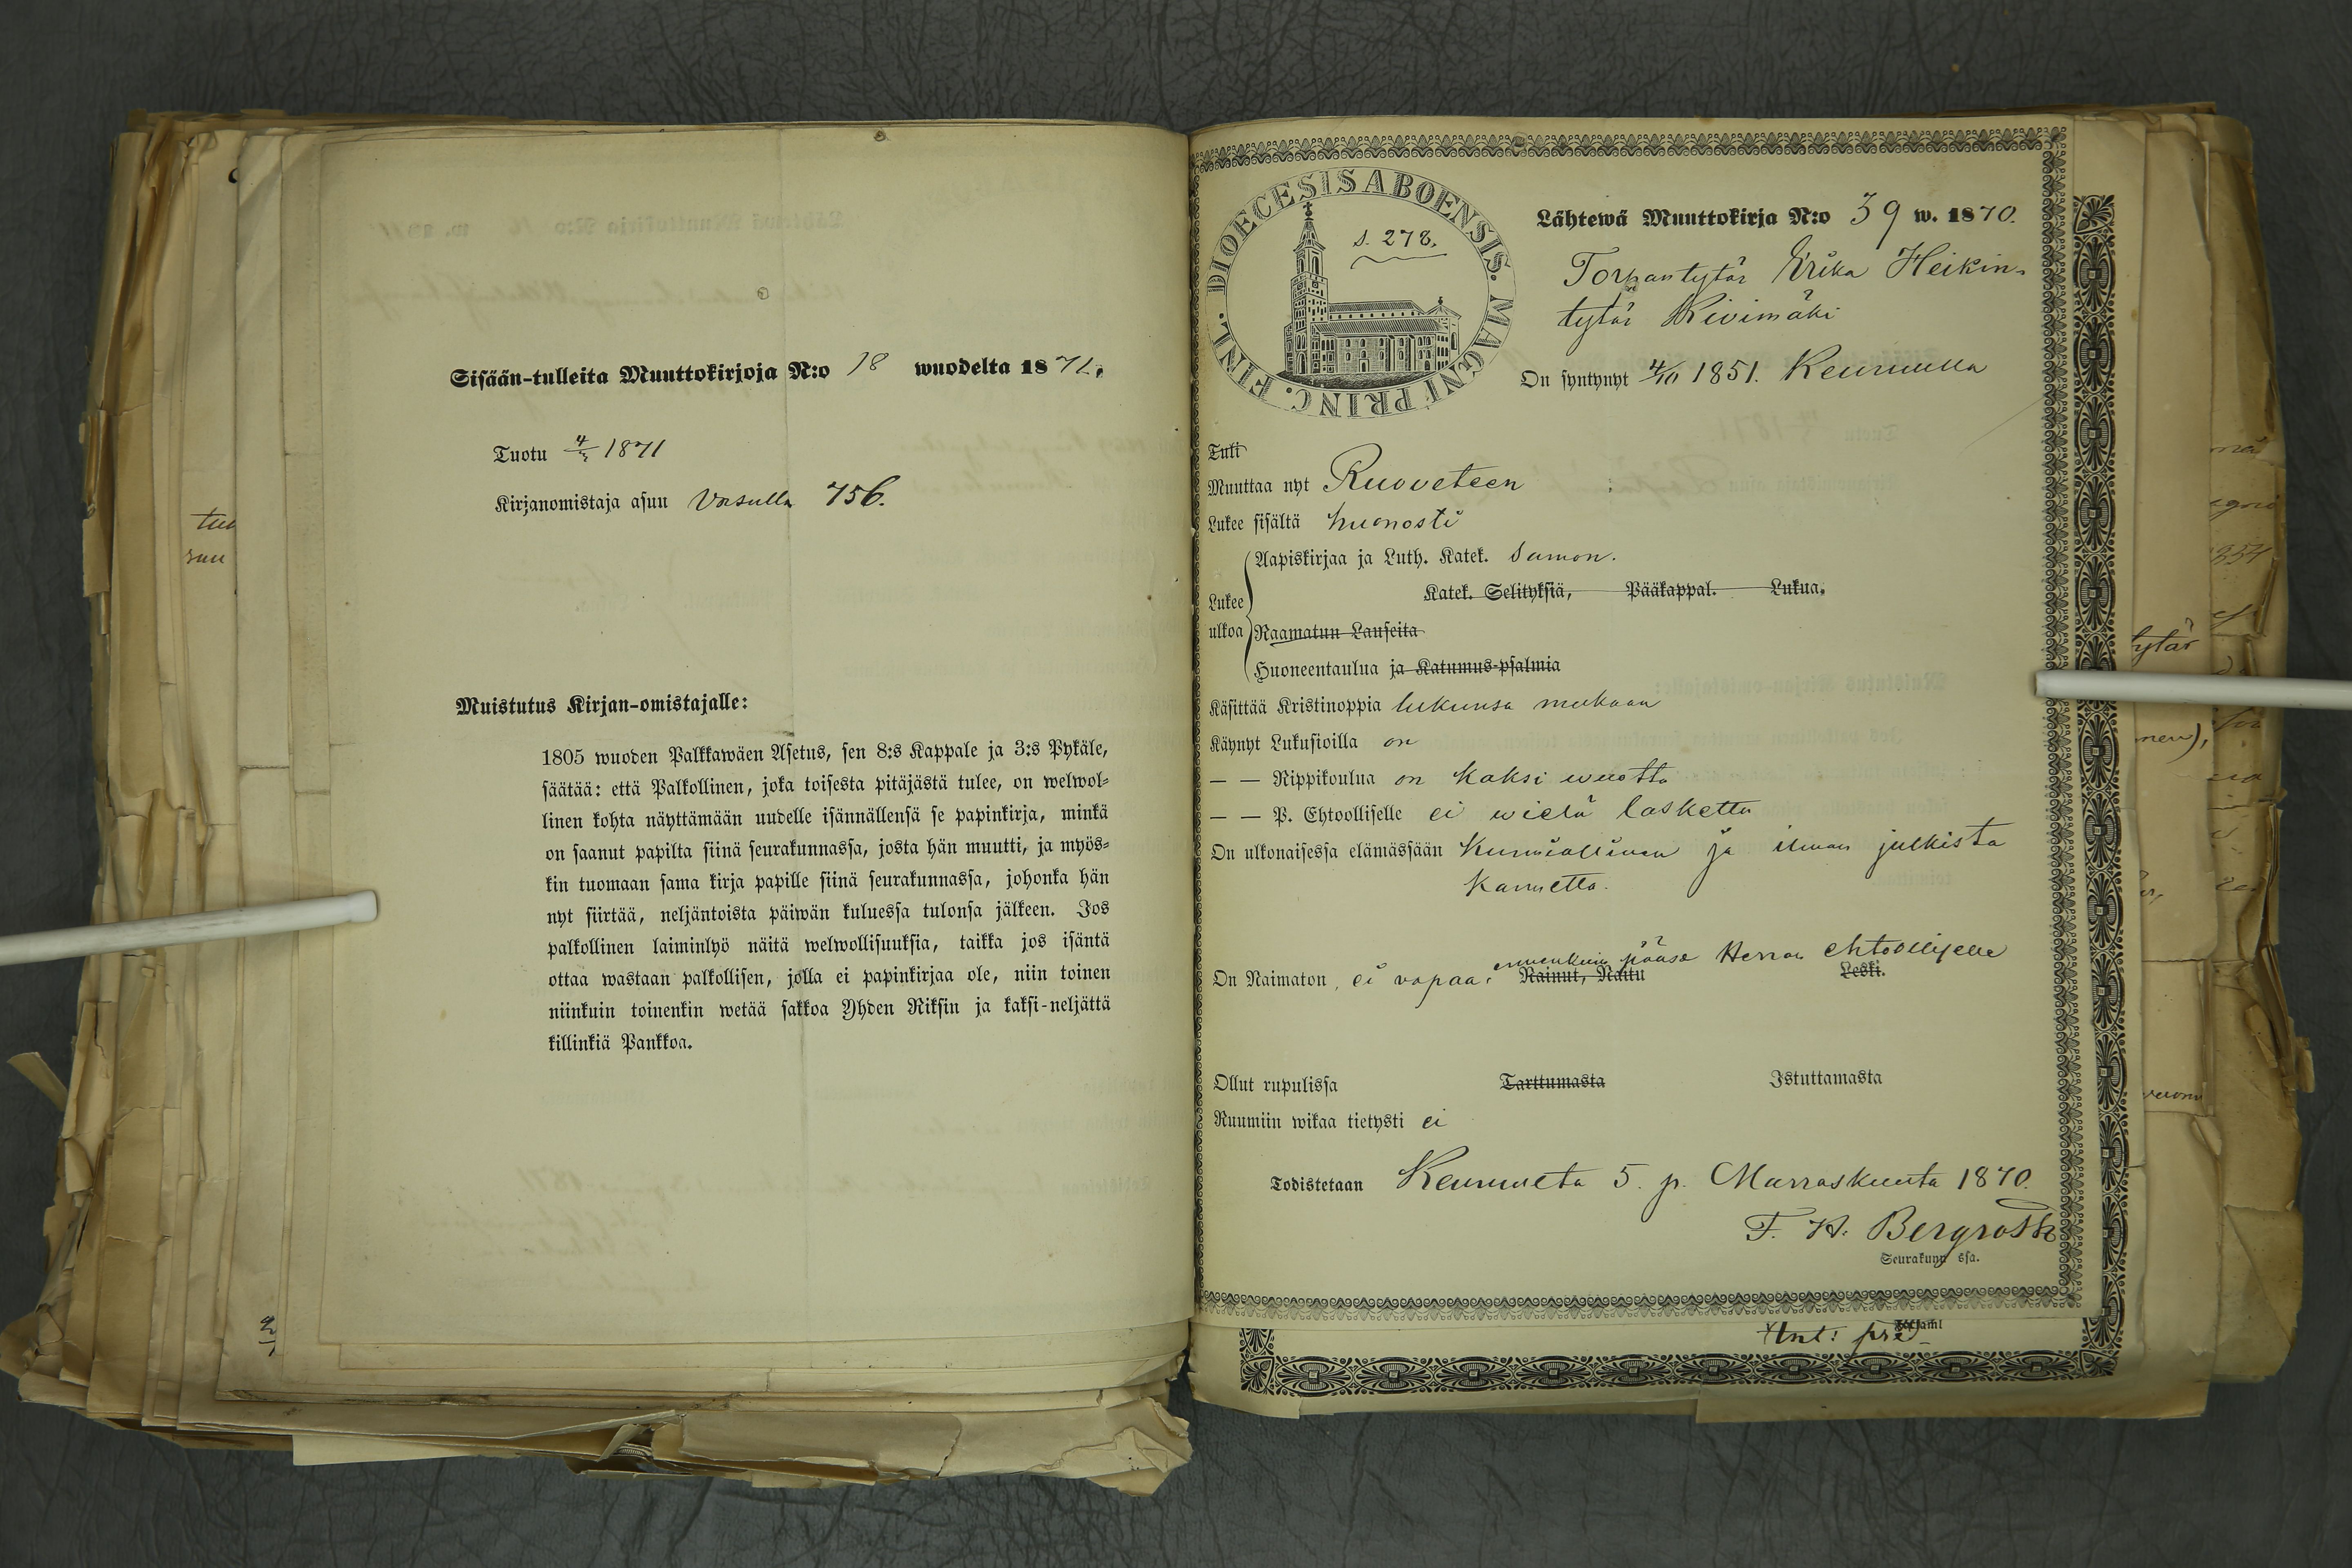 Sisään-tulleita Muuttokirjoja N:o 18 wuodelta 1871.
Tuotu 4/3 1871
Kirjanomistaja asuu Vasulla 756.
Muistutus Kirjan-omistajalle:
1805 wuoden Palkkawäen Asetus, sen 8:s Kappale ja 3:s Pykäle,
säätää: että Palkollinen, joka toisesta pitäjästä tulee, on welwol-
linen kohta näyttämään uudelle isännällensä se papinkirja, minkä
on saanut papilta siinä seurakunnassa, josta hän muutti, ja myös-
kin tuomaan sama kirja papille siinä seurakunnassa, johonka hän
nyt siirtää, neljäntoista päiwän kuluessa tulonsa jälkeen. Jos
palkollinen laiminlyö näitä welwollisuuksia, taikka jos isäntä
ottaa wastaan palkollisen, jolla ei papinkirjaa ole, niin toinen
niinkuin toinenkin wetää sakkoa Yhden Riksin ja kaksi-neljättä
killinkiä Pankkoa.
DIOECESIS ABOENSIS. MAGNI PRINC. FINL.
s. 278.
Lähtewä Muuttokirja N:o 39 w. 1870.
Torpantytär Erika Heikin-
tytär Kivimäki
On syntynyt 4/10 1851. Keuruulla
Tuli
Muuttaa nyt Ruoveteen
Lukee sisältä huonosti
Lukee ulkoa
Aapiskirjaa ja Luth. Katek. Samon.
Katek. Selityksiä, Pääkappal. Lukua.
Raamatun Lauseita
Huoneentaulua ja Katumus-psalmia
Käsittää Kristinoppia lukunsa mukaan
Käynyt Lukusioilla on
— — Rippikoulua on kaksi wuotta
— — P. Ehtoolliselle ei wielä laskettu
On ulkonaisessa elämässään kunniallinen ja ilman julkista
kannetta.
On Naimaton, ei vapaa, ennenkuin pääse Herran ehtoolliselle
Nainut, Naitu Leski.
Ollut rupulissa Tarttumasta Istuttamasta
Ruumiin wikaa tietysti ei
Todistetaan Keuruulta 5. p. Marraskuuta 1870.
F. H. Bergroth
Seurakunn ssa.
tytär